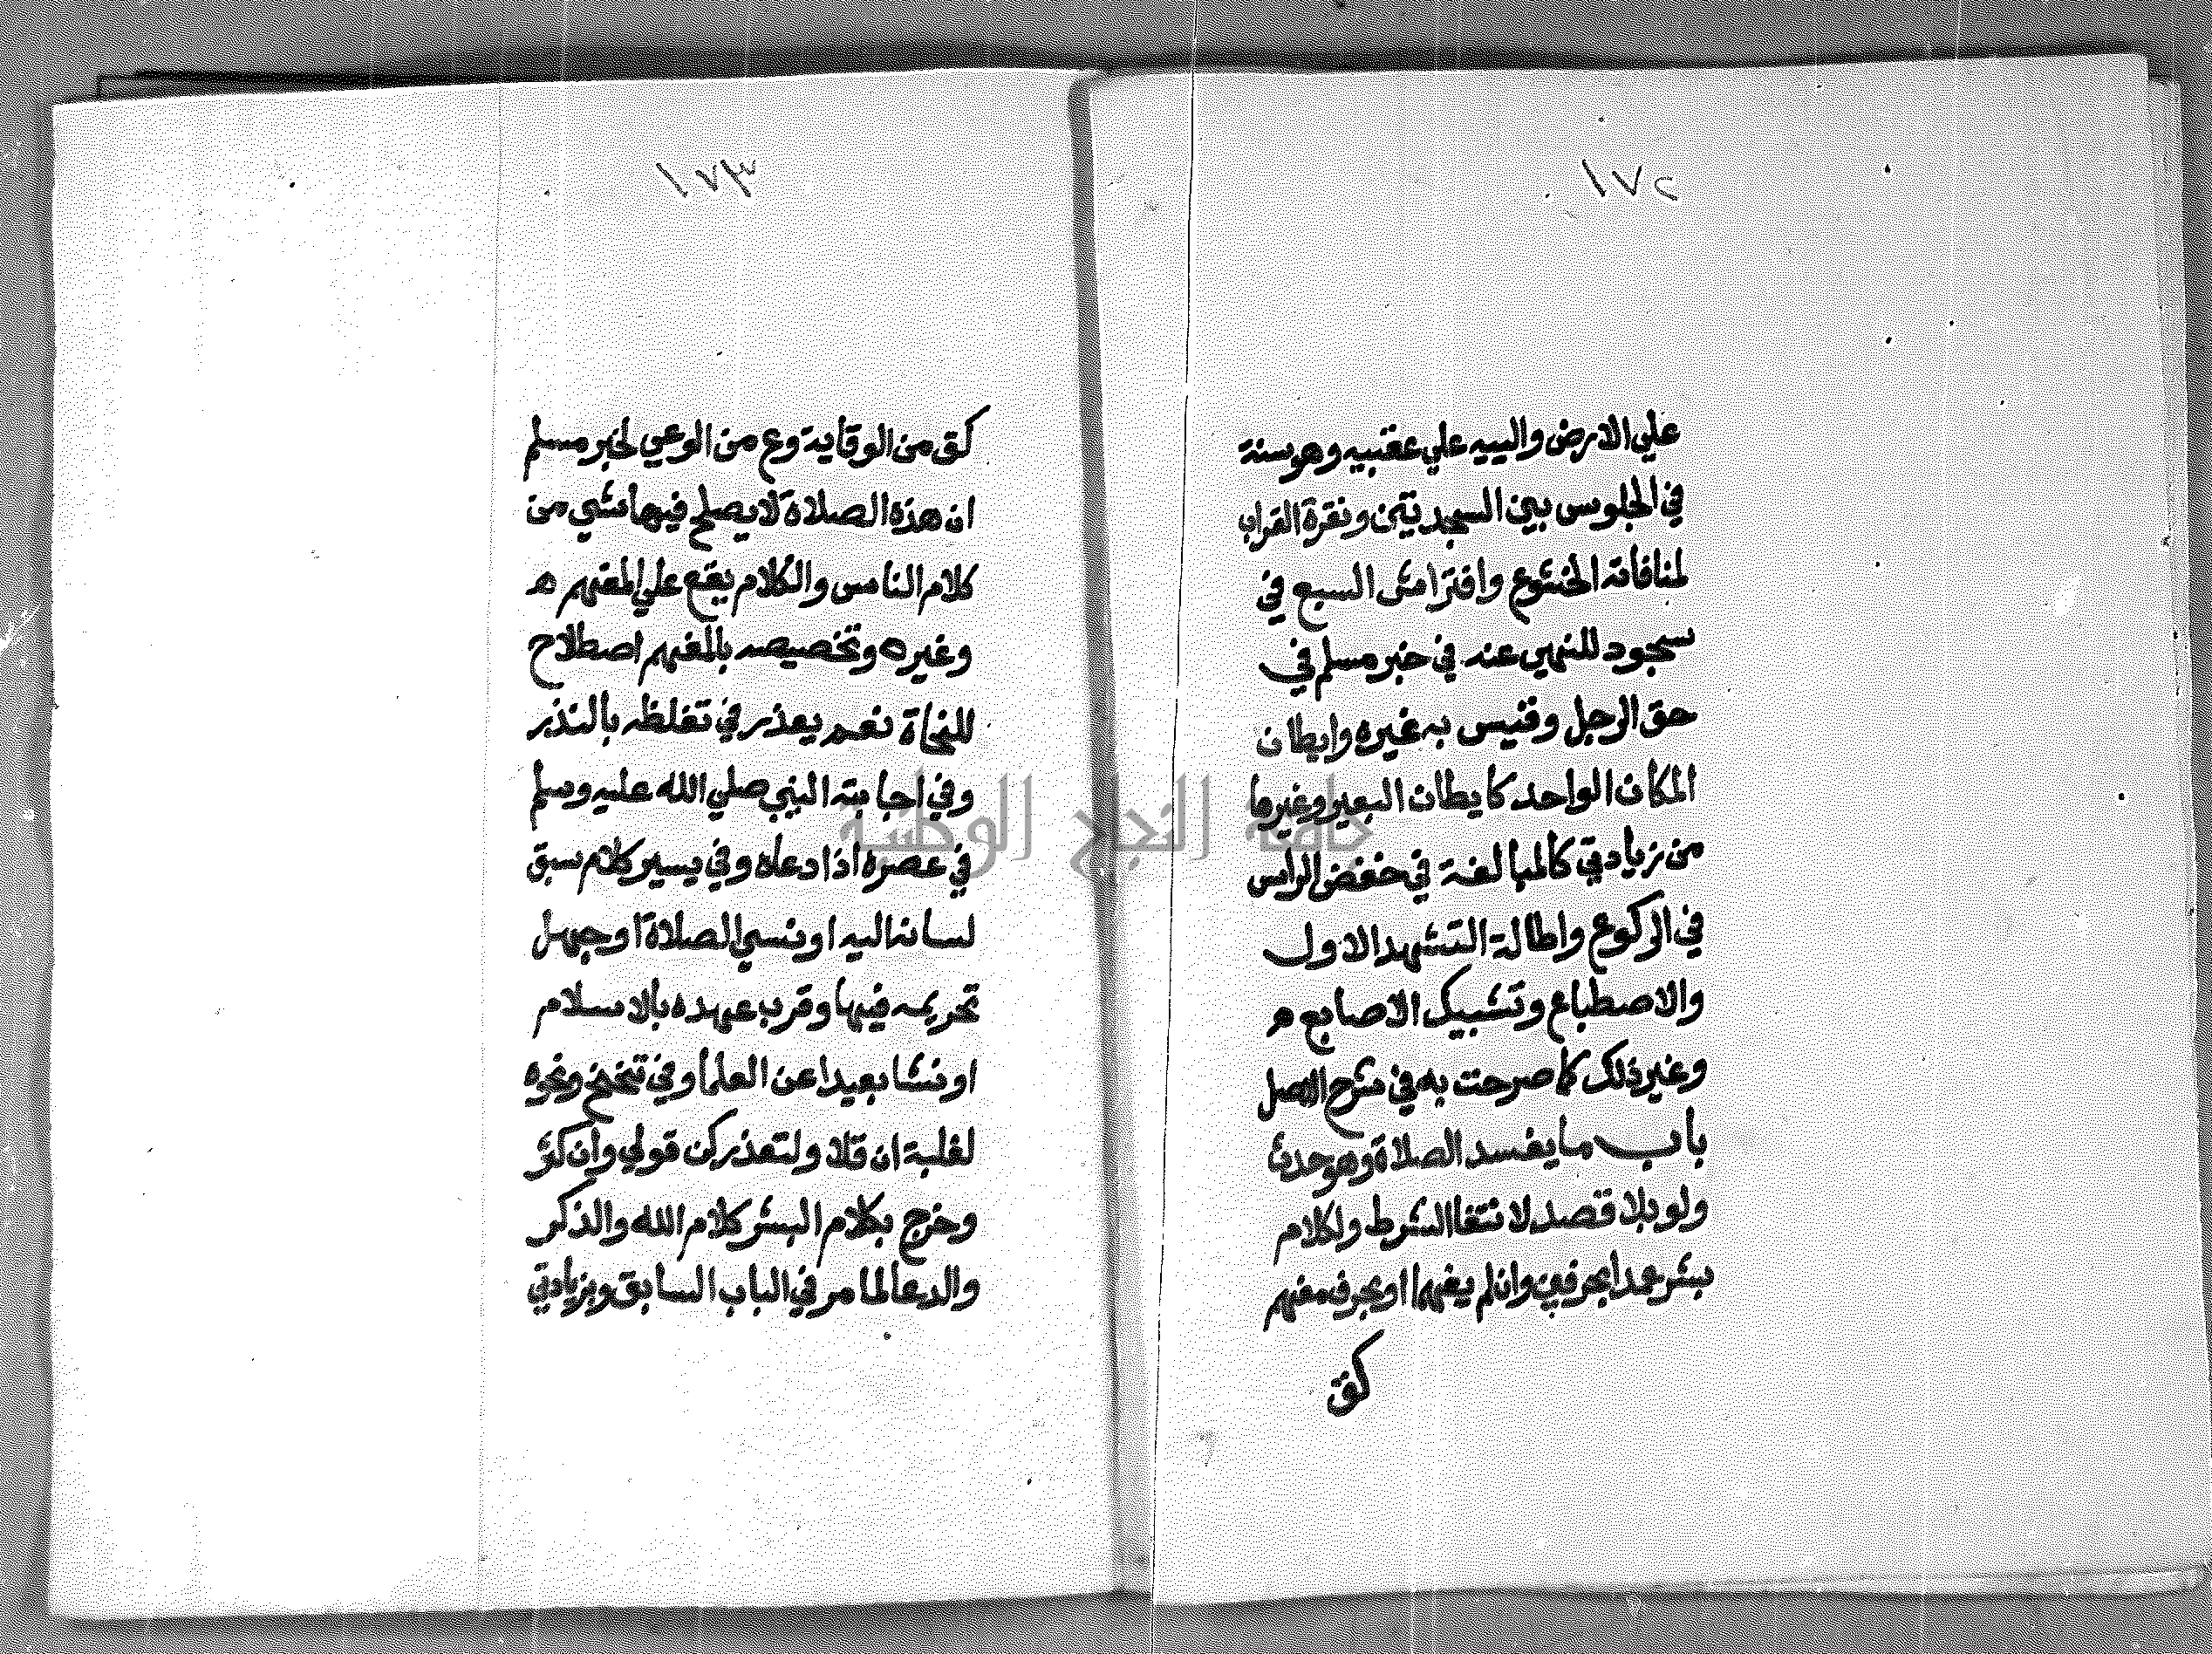 ١٧٢
علي الارض والييه علي عقبيه وهو سنة
في الجلوس بين السجدتين ونقرة الغراب
لمنافاته الخشوع وافتراش السبع في
سجود للنهي عنه في خبر مسلم في
حق الرجل وقيس به غيره وايطان
المكان الواحد كايطان البعير وغيرها
من زيادتي كالمبالغة في خفض الراس
في الركوع واطالة التشهد الاول
والاضطباع وتشبيك الاصابع ه
وغير ذلك كما صرحت به في شرح الاصل
باب ما يفسد الصلاة وهو حدث
ولو بلا قصد لانتفا الشرط ولكلام
بشر عمدا بحرفين وان لم يفهما او بحرف مفهم
كق
١٧٣
كق من الوقاية وع من الوعي لخبر مسلم
ان هذه الصلاة لا يصلح فيها شي من
كلام الناس والكلام يقع علي المفهم ه
وغيره وتخصيصه بالمفهم اصطلاح
للنحاة نعم يعذر في تلفظه بالنذر
وفي اجابته النبي صلي الله عليه وسلم
في عصره اذا دعاه وفي يسير كلام سبق
لسانه اليه او نسي الصلاة او جهل
تحريمه فيها وقرب عهده بالاسلام
او نشا بعيدا عن العلما وفي تنحنح ونحوه
لغلبة ان قلا ولتعذر ركن قولي وان كثر
وخرج بكلام البشر كلام الله والذكر
والدعا لما مر في الباب السابق وبزيادتي
جامعة النجاح الوطنية